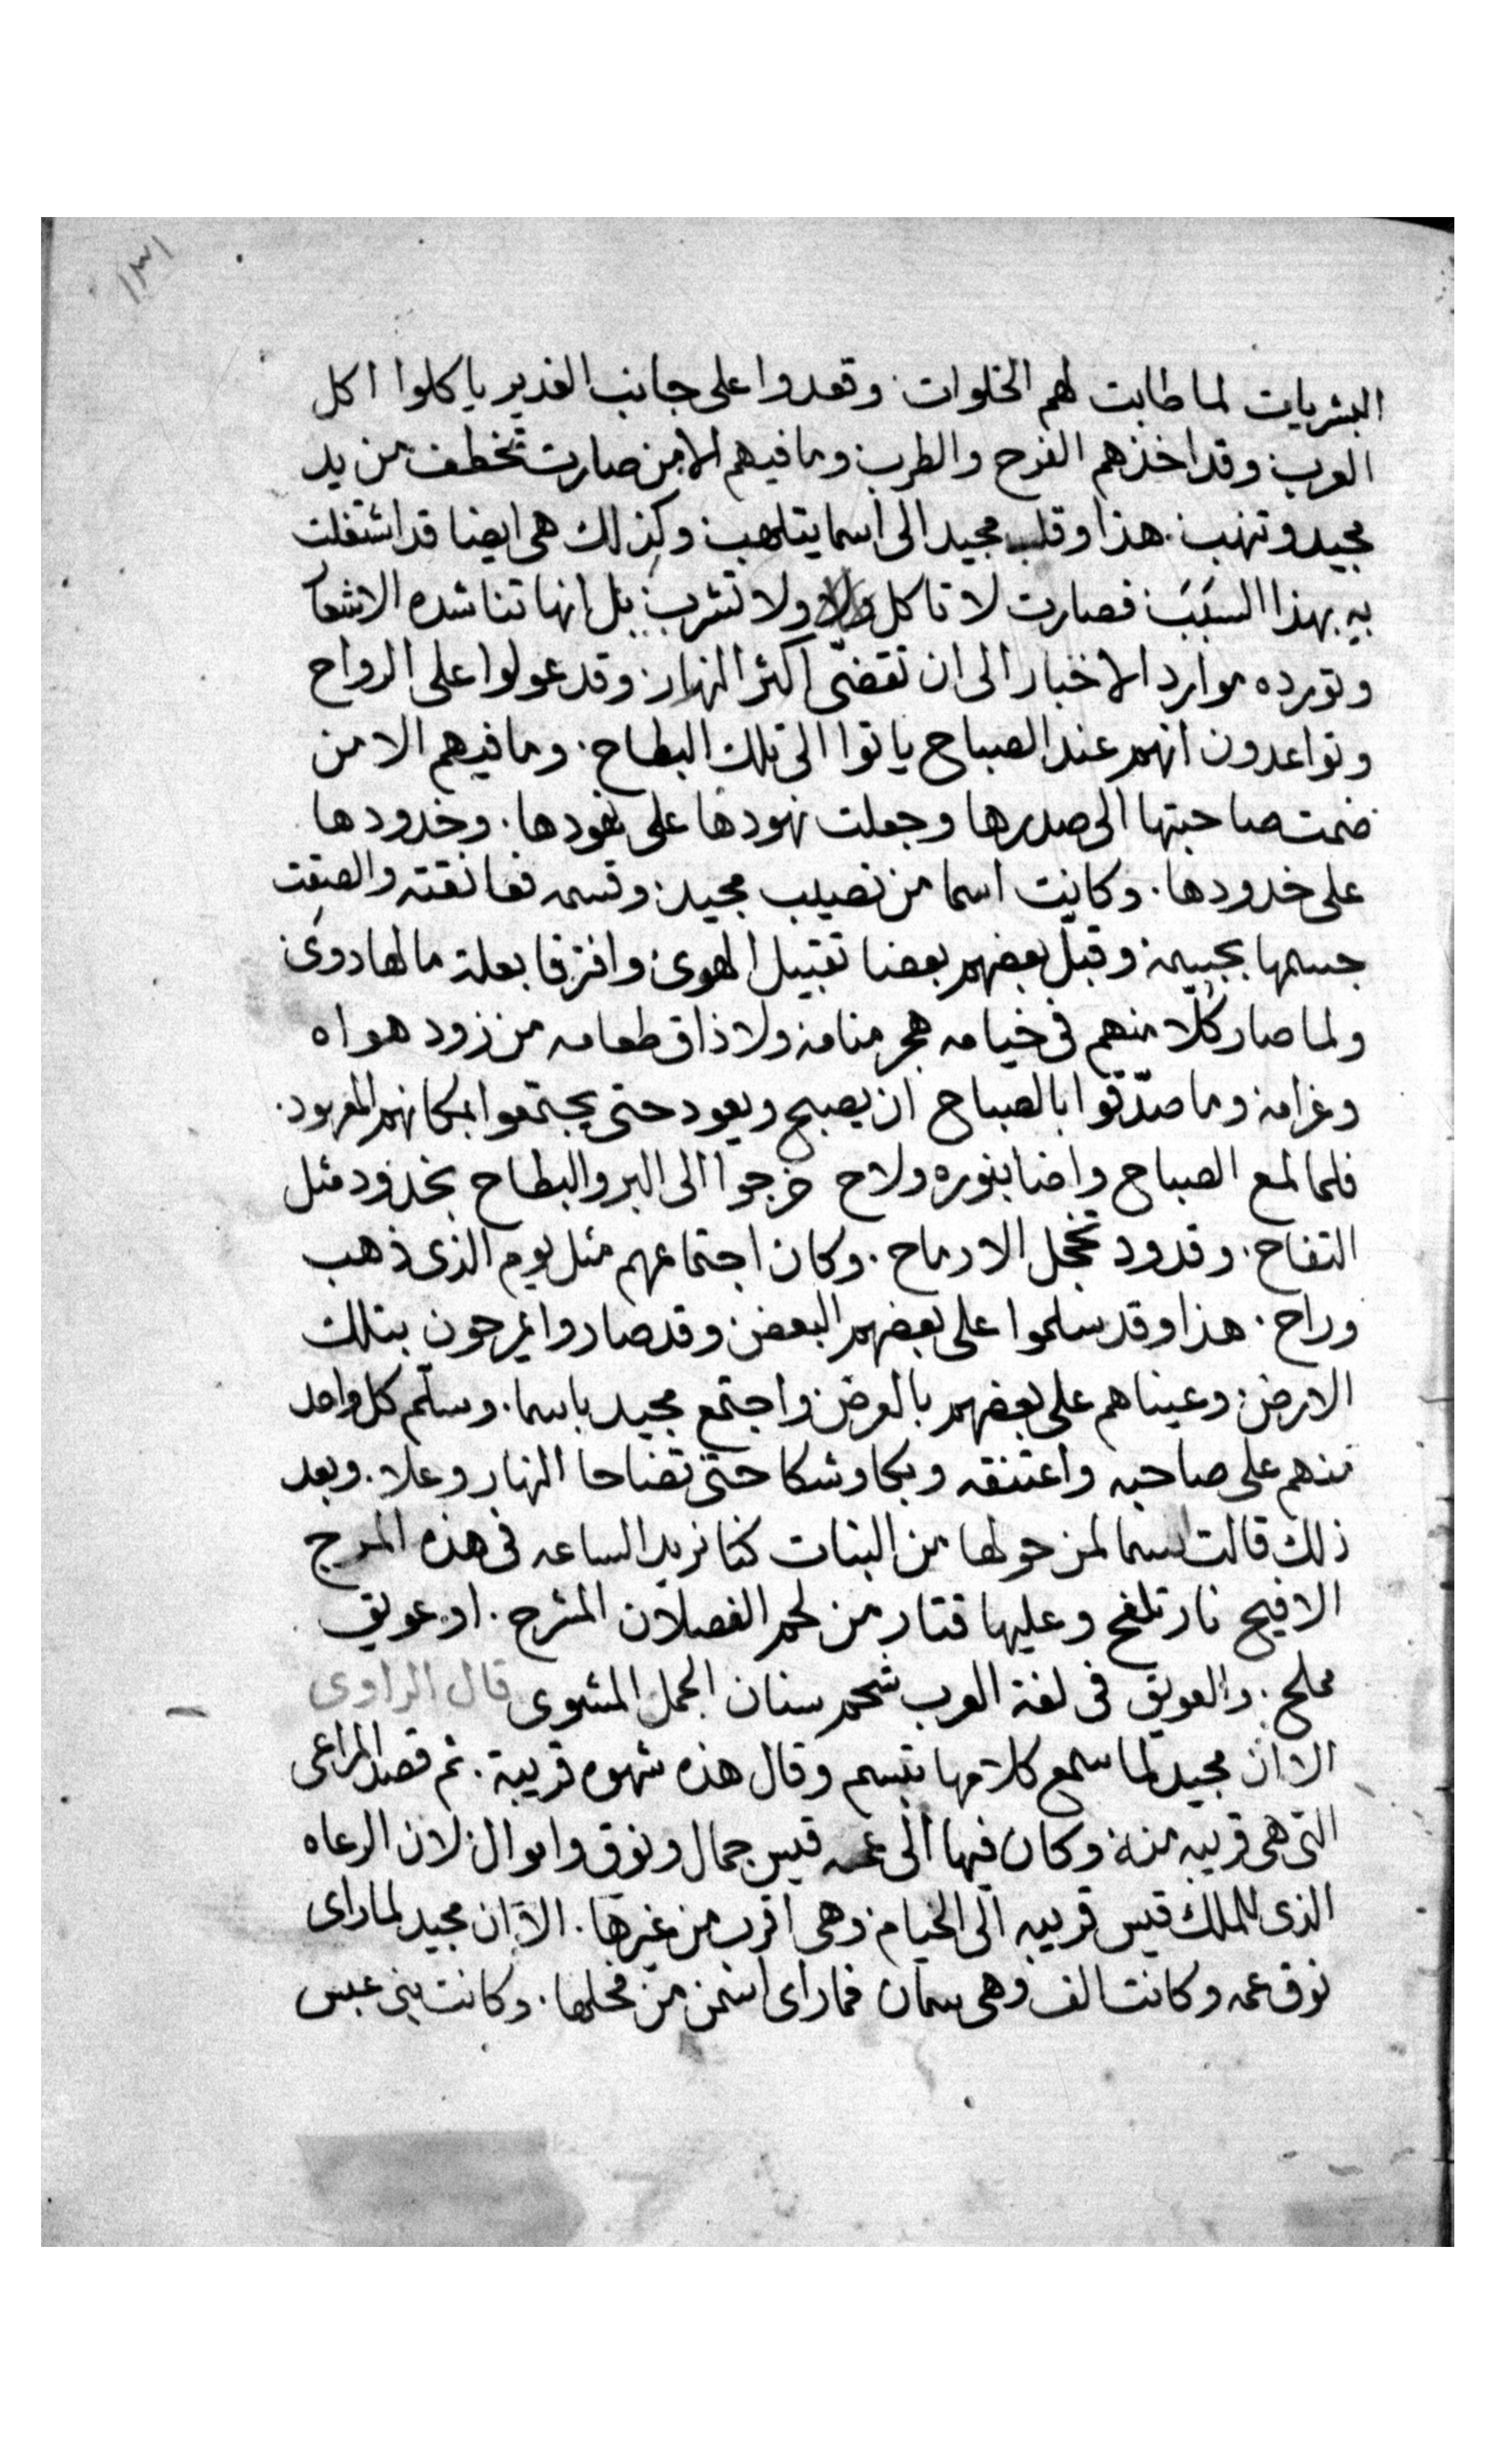 ١٣١
البشريات لما طابت لهم الخلوات. وقعدوا على جانب الغدير ياكلوا اكل
العرب وقد اخذهم الفرح والطرب وما فيهم الا من صارت تخطف من يد
مجيد وتنهب. هذا وقلب مجيد الى اسما يتلهب وكذلك هى ايضا قد اشتغلت
به بهذا السبب فصارت لا تاكل ولا تشرب بل انها تناشده الاشعار
وتورده موارد الاخبار الى ان تقضّى اكثر النهار وقد عولوا على الرواح
وتواعدون انهم عند الصباح ياتوا الى تلك البطاح. وما فيهم الا من
ضمت صاحبتها الى صدرها وجعلت نهودها على نهودها. وخدودها
على خدودها. وكانت اسما من نصيب مجيد وقسمه فعانقته والصقت
جسمها بجسمه وقبل بعضهم بعضا تقبيل الهوى وافترقا بعلة ما لها دوى
ولما صار كلّا منهم فى خيامه هجر منامه ولا ذاق طعامه من زود هواه
وغرامه وما صدّقوا بالصباح ان يصبح ويعود حتى يجتمعوا بمكانهم المعهود.
فلما لمع الصباح واضا بنوره ولاح خرجوا الى البر والبطاح بخدود مثل
التفاح. وقدود تخجل الارماح. وكان اجتماعهم مثل يوم الذى ذهب
وراح. هذا وقد سلموا على بعضهم البعض وقد صاروا يمرحون بتلك
الارض وعيناهم على بعضهم بالعرض واجتمع مجيد باسما. وسلّم كل واحد
منهم على صاحبه واعتنقه وبكا وشكا حتى تضاحا النهار وعلا. وبعد
ذلك قالت اسما لمن حولها من البنات كنا نريد الساعه فى هذه المرج
الافيح نار تلفح وعليها قتار من لحم الفصلان المشرح. او عويق
مملح. والعويق فى لغة العرب شحم سنان الجمل المشوى قال الراوى
الا ان مجيد لما سمع كلامها تبسم وقال هذه شهوه قريبة. ثم قصد المراعى
التى هى قريبه منه وكان فيها الى عمه قيس جمال ونوق واموال لان الرعاه
الذى للملك قيس قريبه الى الخيام وهى اقرب من غيرها. الا ان مجيد لما راى
نوق عمه وكانت الف وهى سمان فما راى اسمن من فحلها. وكانت بنى عبس